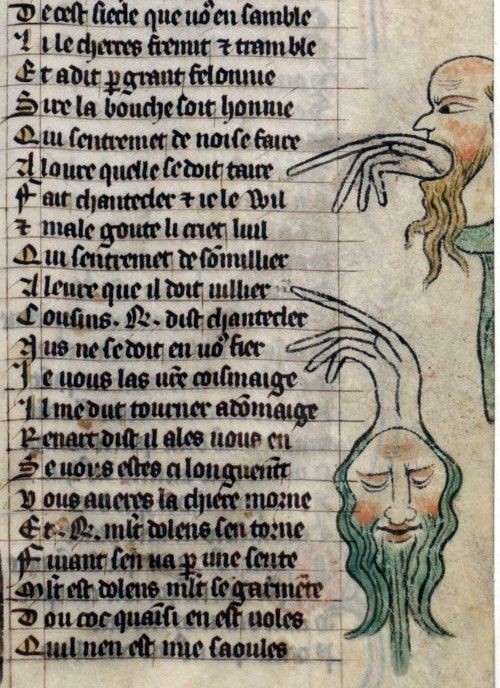 De cest siecle que uoꝰ en samble
Li lecherres fremit ⁊ tramble
Et a dit ꝑ grant felonnie
Sire la bouche soit honnie
Qui sentremet de noise faire
A loure quelle se doit taire
Fait chantecler ⁊ ie le wil
⁊ male goute li criet luil
Qui sentremet de sōmillier
A leure que il doit uillier
Cousins .R. dist chantecler
Nus ne se doit en uoꝰ fier
De uous las ur̄e coismaige
Il me dut tourner a dōmaige
Renart dist il ales uous en
Se uous estes ci longuem̄t
Vous aueres la chiere morne
Et .R. ml̄t dolens sen torne
Fuiant sen ua ꝑ une sente
Ml̄t est dolens ml̄t se gaimēte
Dou coc quausi en est uoles
Quil nen est mie saoules